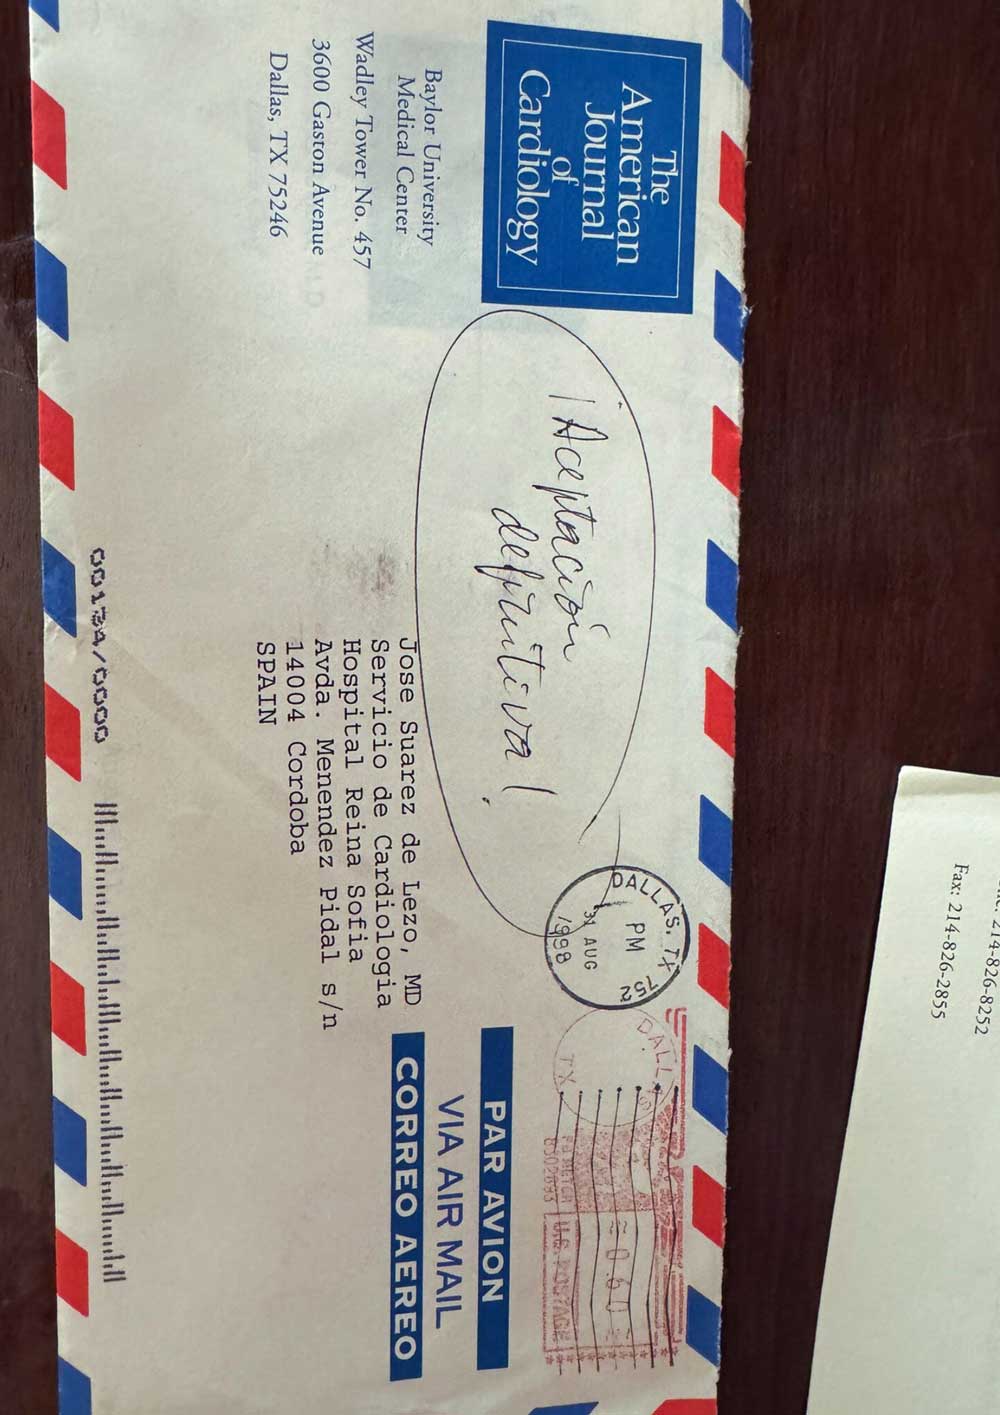 The
American
Journal
of
Cardiology
Baylor University
Medical Center
Wadley Tower No. 457
3600 Gaston Avenue
Dallas, TX 75246
¡Aceptación
definitiva!
DALLAS, TX 752
PM
31 AUG
1998
DALLAS
TX
0.60
PB METER
U.S. POSTAGE
Jose Suarez de Lezo, MD
Servicio de Cardiologia
Hospital Reina Sofia
Avda. Menendez Pidal s/n
14004 Cordoba
SPAIN
PAR AVION
VIA AIR MAIL
CORREO AEREO
00134/0000
214-826-8252
Fax: 214-826-2855